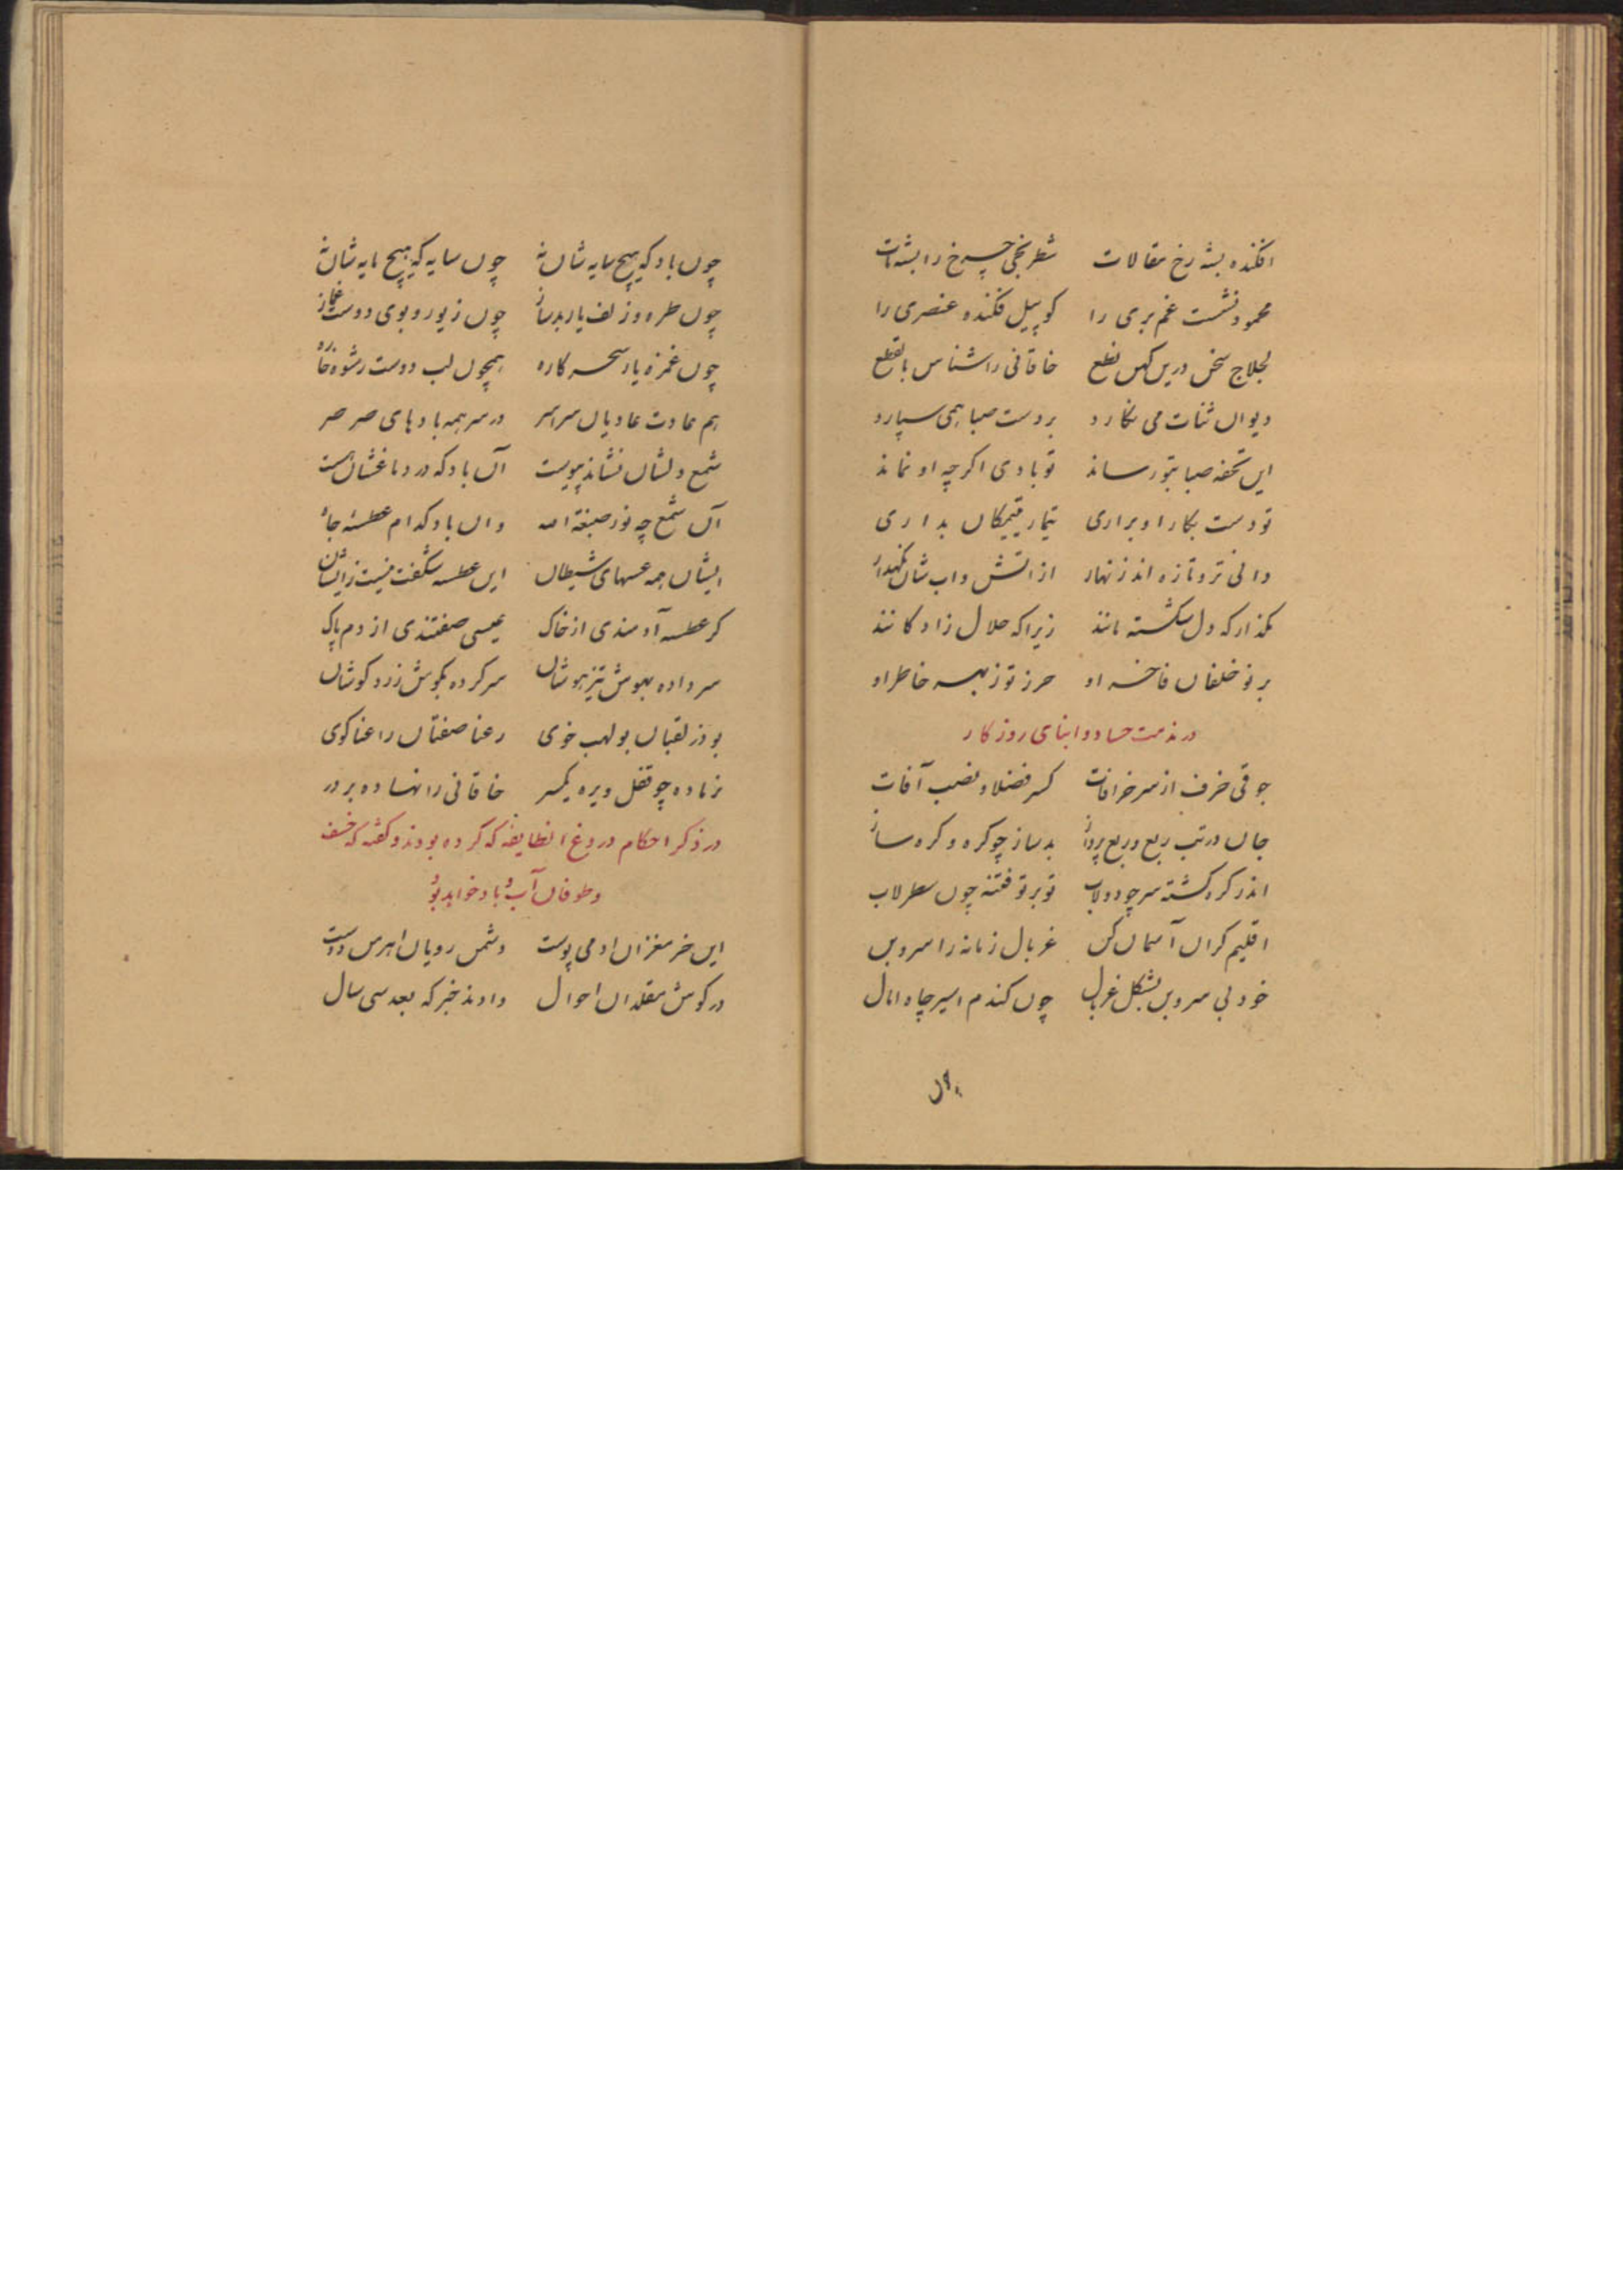 افکنده بشه رخ مقالات شطرنجی چرخ را بشه مات
محمود نشست غم بری را کو پیل فکنده عنصری را
لجلاج سخن درین کهن نطع خاقانی را شناس بالقطع
دیوان ثنات می نکارد بر دست صبا همی سپارد
این تحفه صبا بتو رساند تو بادی اکرچه او نماند
تو دست بکار او براری تیمار یتیمکان بداری
دانی تر و تازه اند زنهار از اتش و اب شان نکهدار
مکذار که دل شکسته مانند زیرا که حلال زادکانند
بر نو خلفان فاخر او حرز تو ز بهر خاطر او
در مذمت حساد و ابنای روزکار
جوقی خرف از سر خرافات کسر فضلا و نصب آفات
جان در تب ربع و ربع پرداز بدساز چو کره و کره ساز
اندر کره کشته سر چو دولاب تو بر تو فتنه چون سطرلاب
اقلیم کران آسمان کن غربال زمانه را سر و بن
خود بی سر و بن بشکل غربال چون کندم اسیر چاه امال
چون باد که هیچ سایه شان نه چون سایه که هیچ مایه شان نه
چون طره و زلف یار بدساز چون زیور و بوی دوست غماز
چون غمزه یار سحر کاره همچون لب دوست رشوه خواره
هم عادت عادیان سراسر در سر همه بادهای صرصر
شمع دلشان نشاند پیوست آن باد که در دماغشان هست
آن شمع چه نور صبغة الله وان باد کدام عطسه جاه
ایشان همه عسهای شیطان این عطسه شکفت نیست زایشان
کر عطسه آدمندی از خاک عیسی صفتندی از دم پاک
سر داده بهوش تیز هوشان سر کرده بکوش زرد کوشان
بوذر لقبان بولهب خوی رعنا صفتان راعنا کوی
نر ماده چو قفل و پره یکسر خاقانی را نهاده بر در
در ذکر احکام دروغ انطایفه که کرده بودند و کفته که خسف
و طوفان آب و باد خواهد بود
این خر مغزان ادمی پوست دشمن رویان اهرمن دوست
در کوش مقلدان احوال دادند خبر که بعد سی سال